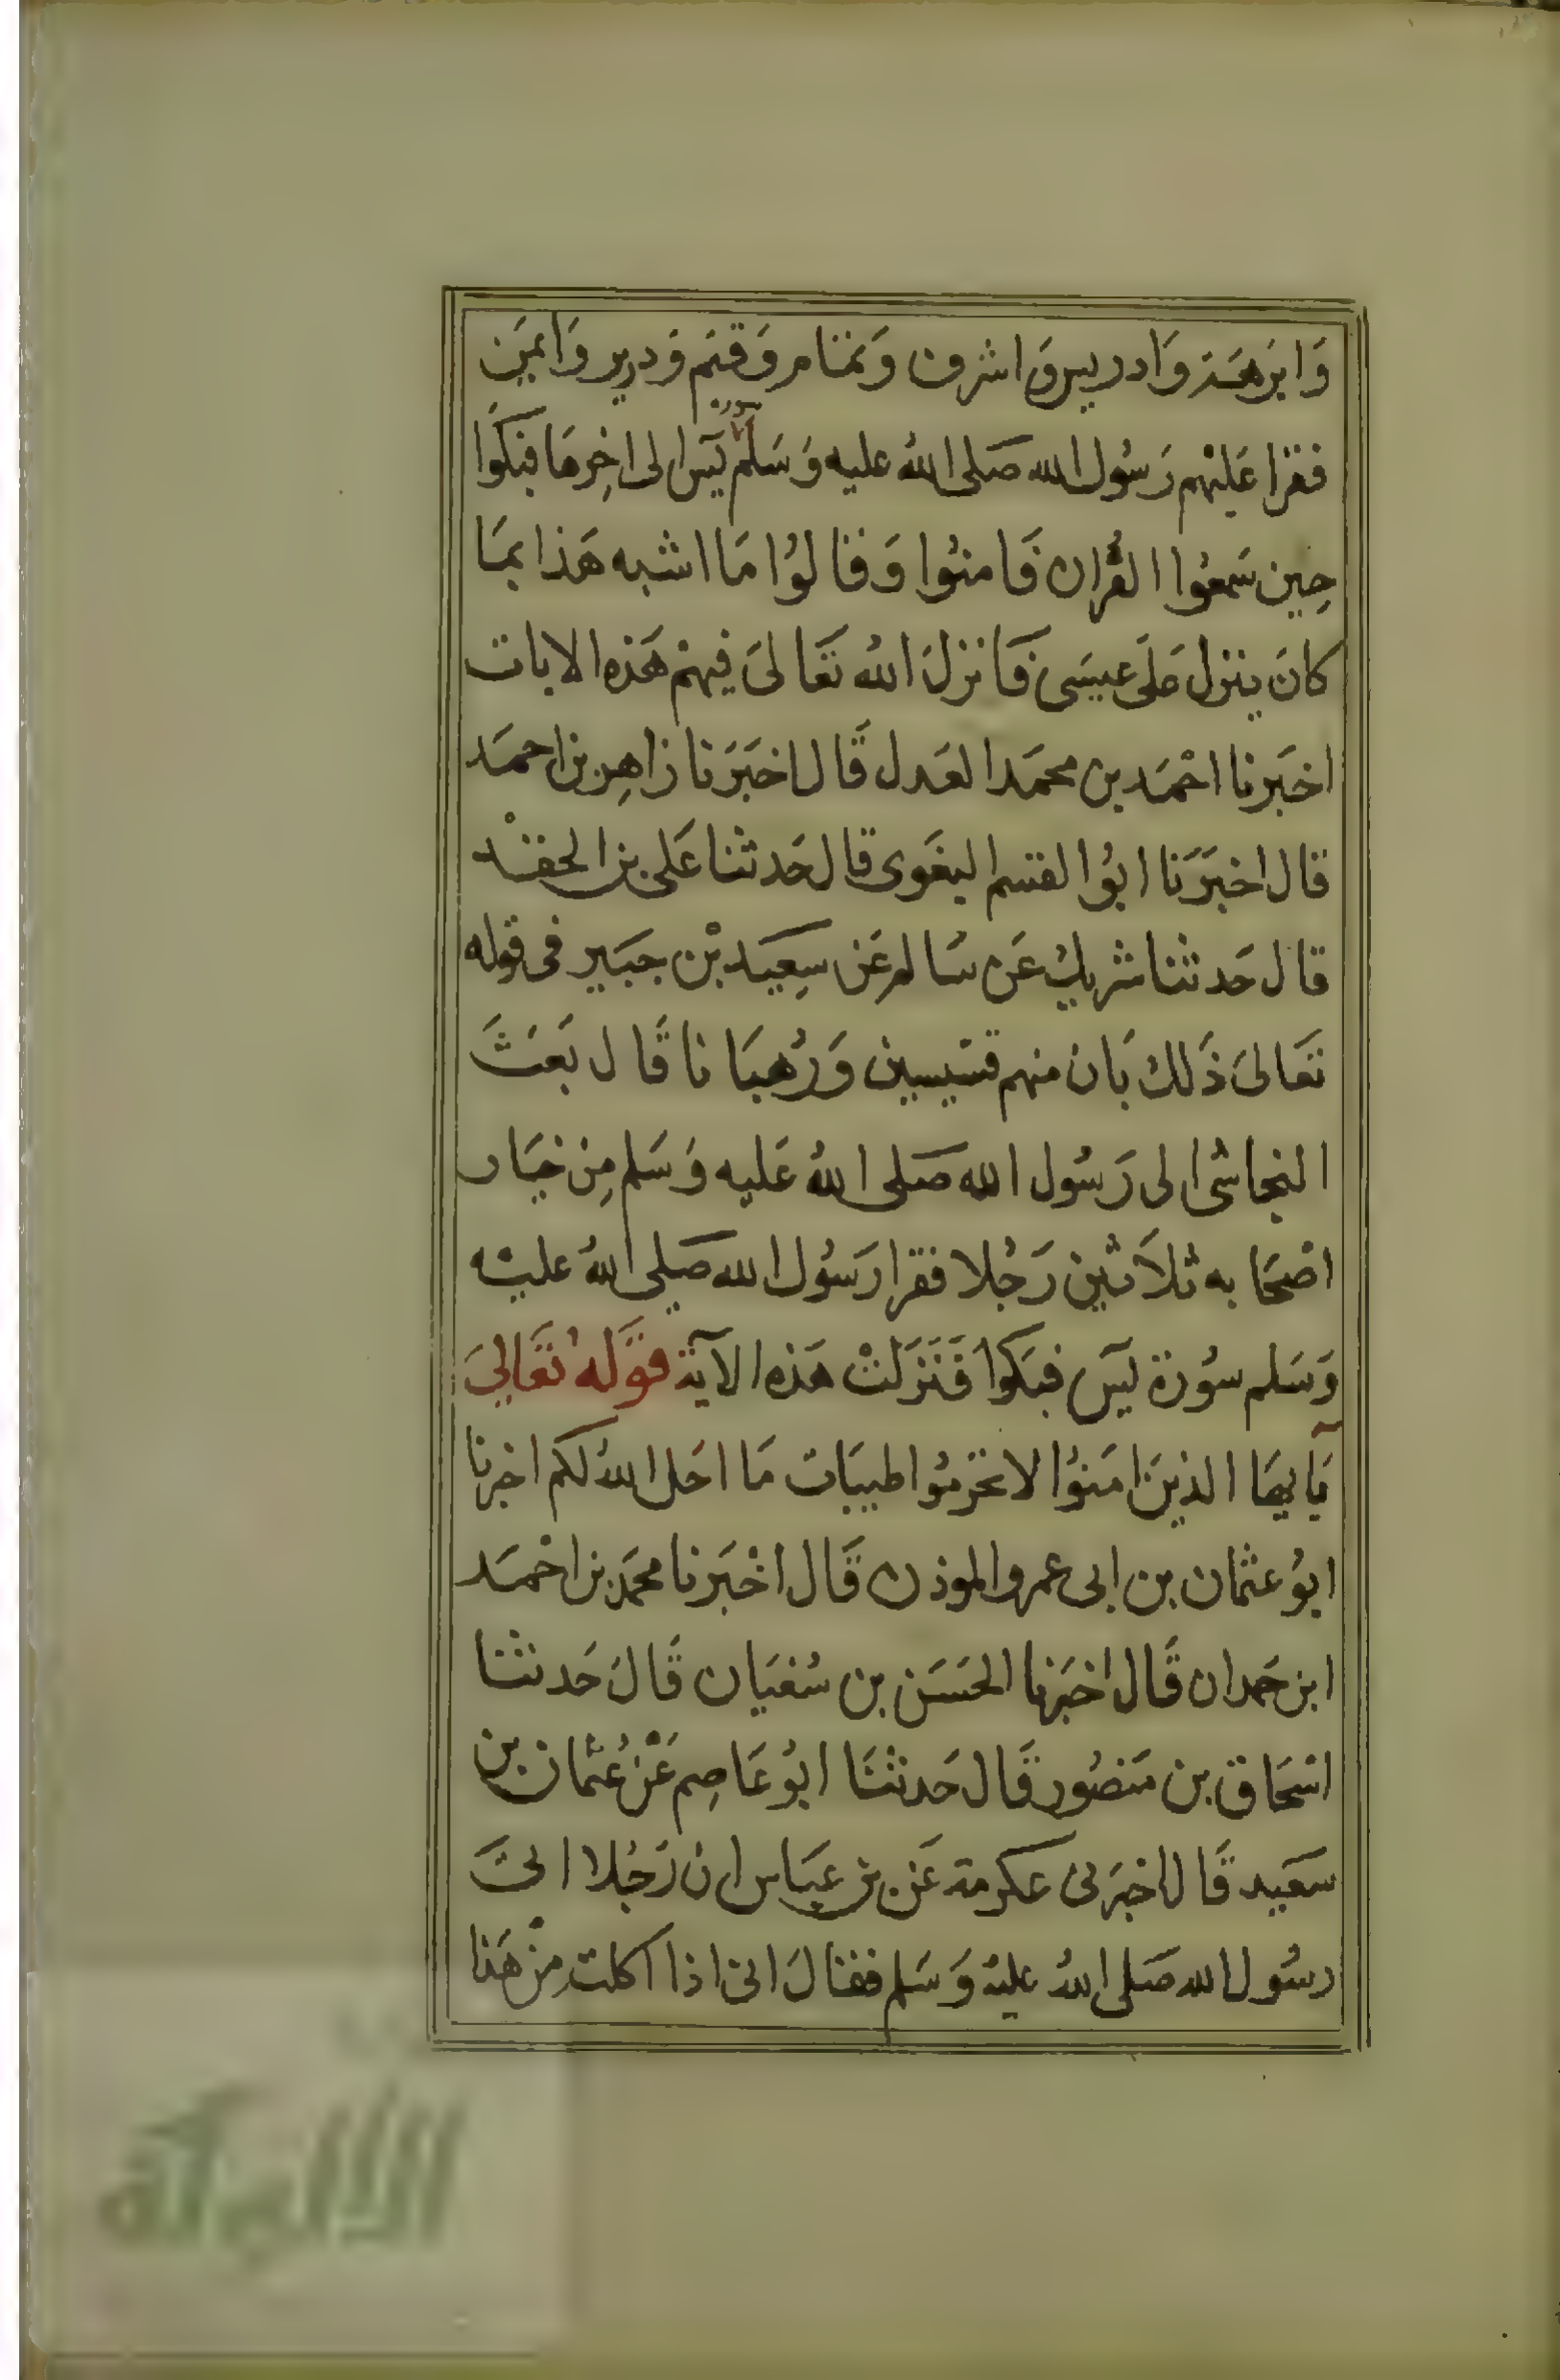 وَابرَهَة وَادريس وَاشرف وَتمَّام وَقثم وَدريد وَايمَن
سورة
فقرا عَليْهم رَسُول الله صَلى اللهُ عليه وَسَلم يٓس الى اخِرهَا فبَكَوا
حِين سَمعُوا القُران فَامنُوا وَقالوُا مَا اشبه هَذا بمَا
كانَ ينزل عَلى عِيسَى فَانزلَ اللهُ تعَالىَ فيهمْ هَذه الايات
اخبَرنا احْمَد بن محمَد العَدل قَال اخبَرَنا زَاهِر بن احمَد
قال اخبَرَنَا ابوُ القسم البغَوى قال حَدثنا عَلى بن الجعْد
قال حَدثنا شريك عَن سَالم عَن سِعيَد بْن جبَير فى قوله
تعَالىَ ذَلك بَان منهم قسّيسين وَرُهبَانا قَال بَعَثَ
النجاشى الى رَسُول الله صَلى اللهُ عَليه وَسَلم مِن خيَار
اصْحَابه ثلاَثين رَجُلا فقرا رَسُول الله صَلى اللهُ عليْه
وَسَلم سُورَة يٓس فبَكوا فَنَزَلتْ هَذه الآية قوَلهُ تعَالىَ
يَايهَا الذينَ امَنوُا لا تحَرمُوا طيبَات مَا احَل اللهُ لكم اخبرنا
ابوُ عثمان بن ابى عمرو الموذن قَال اخْبَرنا محمَد بن احْمَد
ابن حَمدان قَال اخبَرنا الحَسَن بن سُفيَان قَالَ حَدثنا
اسْحَاق بن مَنصُور قَال حَدثنَا ابوُ عَاصِم عَنْ عُثمان بن
سَعيد قَال اخبرَنى عكرمة عَن بن عبَاس ان رَجُلا اتىَ
رسُول الله صَلى اللهُ عليْه وَسَلم فقالَ انى اذا اكلت مِنْ هَذا
الألوكة